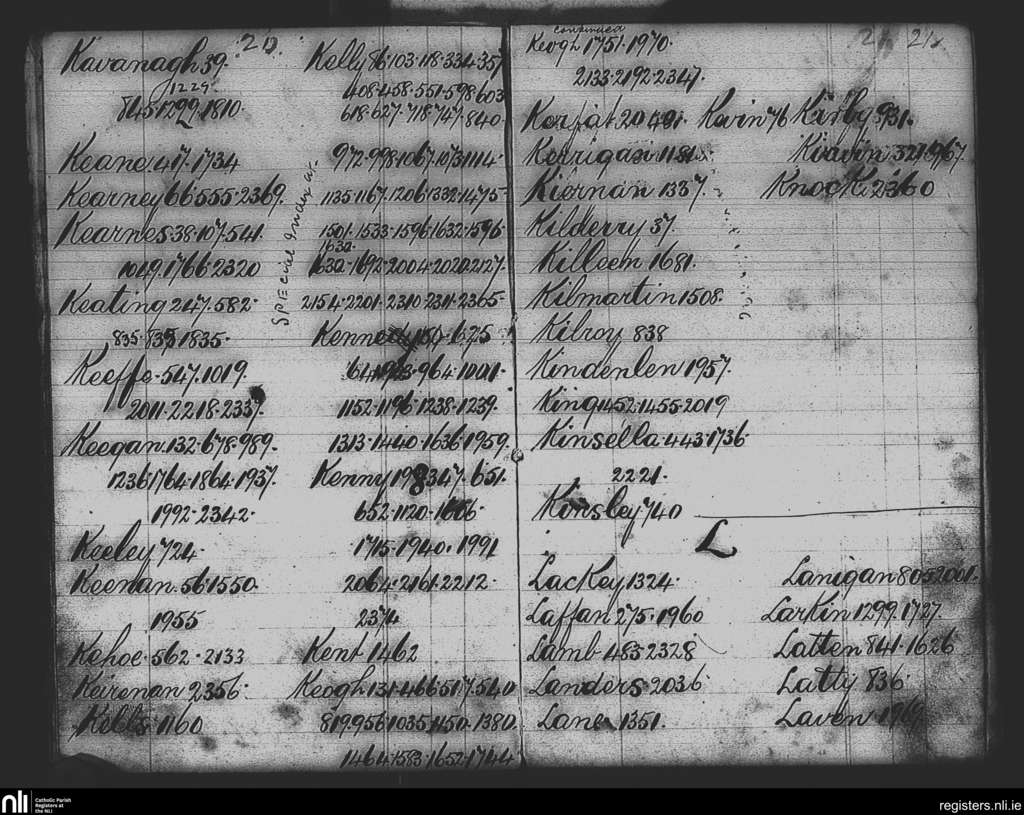 20.
Kavanagh 39.
1229.
845.1299.1810.
Keane.417.1734
Kearney 66.555.2369.
Kearnes.38.107.541.
1049.1766.2320
Keating 247.582.
835.1835.
Keeffe.547.1019.
2011.2218.2337.
Keegan.132.678.989.
1236.1764.1864.1937.
1992.2342.
Keeley 724.
Keenan.56.1550.
1955
Kehoe.562.2133
Keirenan 2356.
Kells.1160
Special Index
Kelly 86.103.118.334.357
408.458.551.598.603
618.627.718.747.840.
972.998.1067.1073.1114.
1135.1167.1206.1332.1475
1501.1533.1596.1632.1596.
1632.
1692.2004.2020.2127.
2154.2201.2310.2311.2365.
Kennedy 675
964.1001.
1152.1196.1238.1239.
1313.1440.1636.1959.
Kenny 198.347.651.
652.1120.1606.
1715.1940.1991
2064.2161.2212.
2374
Kent 1462
Keogh 131.466.517.540
819.956.1035.1150.1380.
1464.1583.1652.1744
21.
continued
Keogh 1751.1970.
2133.2192.2347.
Kevin 76 Kirby 931.
Kerrigan 1181.
Kiernan 1337. Knock.2360
Kilderry 37.
Killeen 1681.
Kilmartin 1508.
Kilroy 838
Kindenlen 1957.
King 1452.1455.2019
Kinsella 443.1736.
2221.
Kinsley 740
L
Lackey 1324. Lanigan 805.2001.
Laffan 275.1960 Larkin 1299.1727.
Lamb 485.2328 Latten 841.1626
Landers 2036. Latty 836.
Lane 1351. Laven
nli
Catholic Parish
Registers at
the NLI
registers.nli.ie